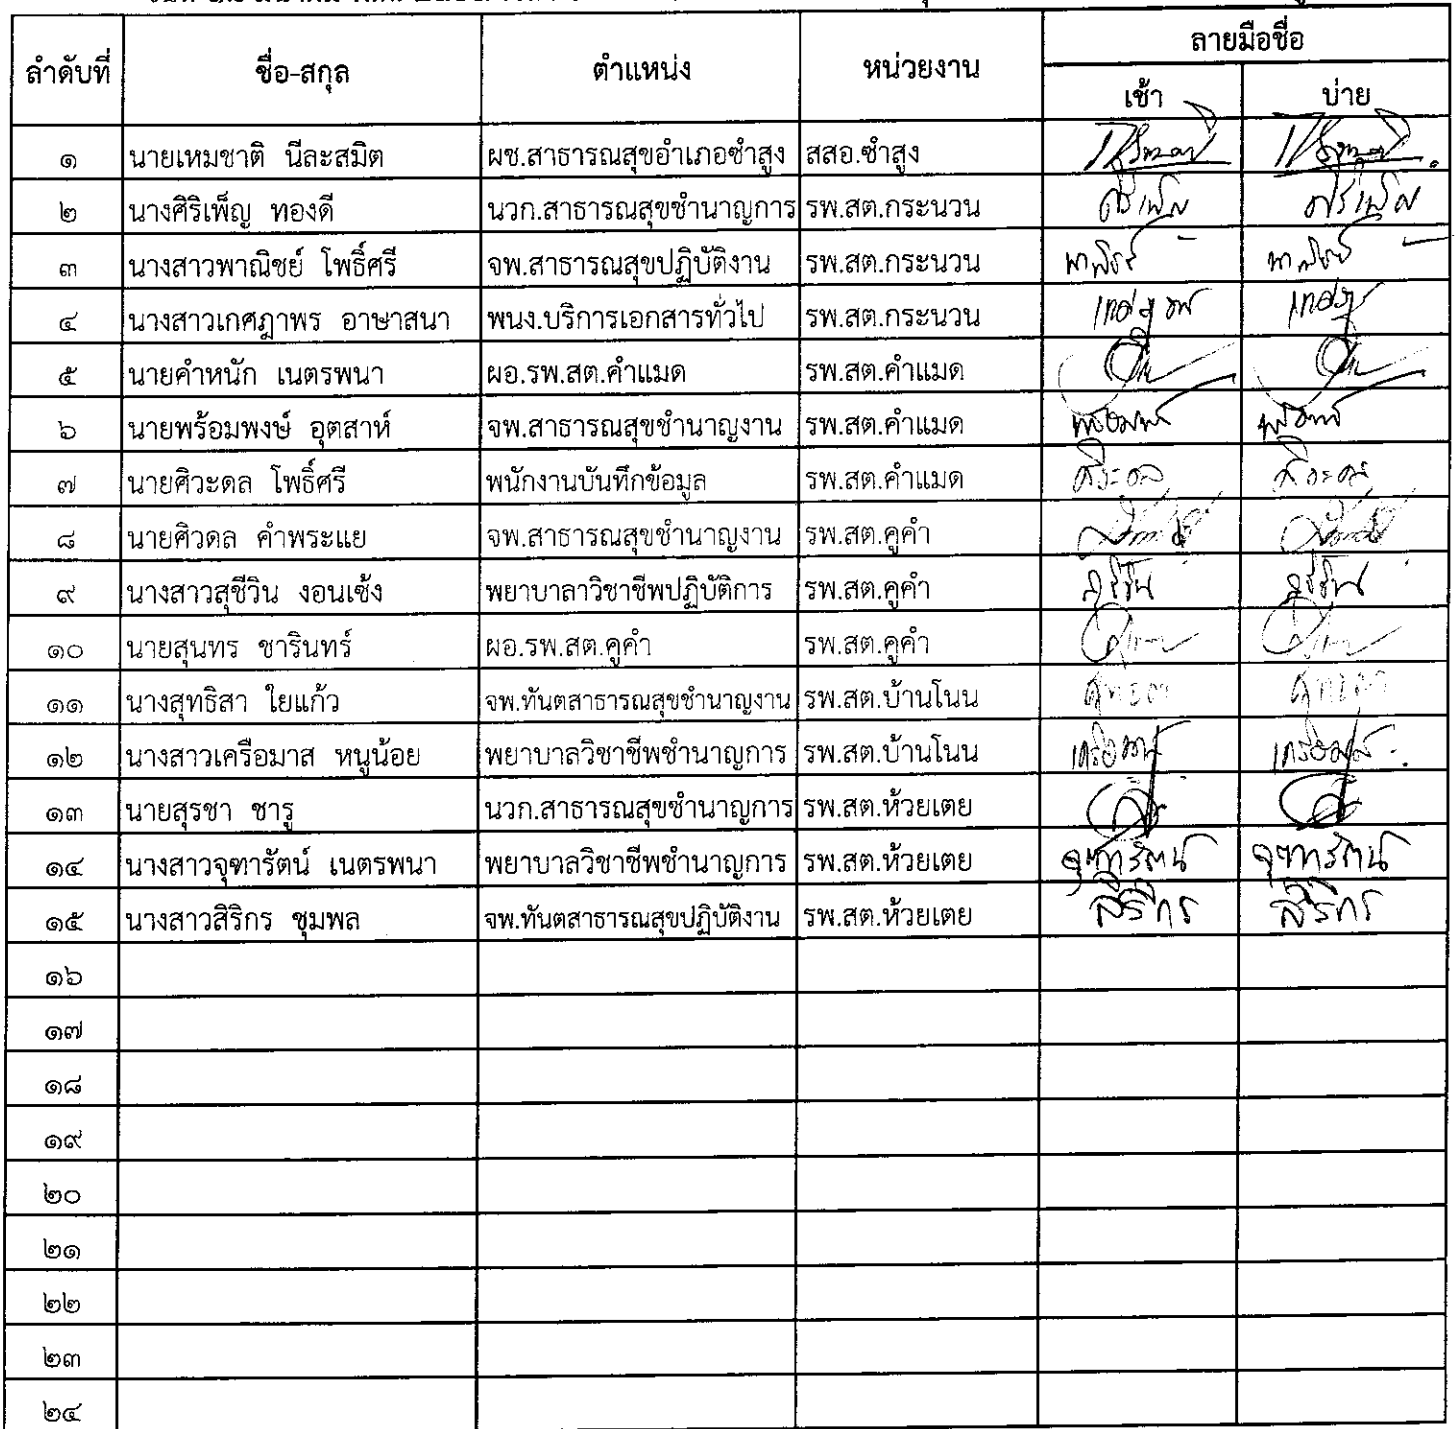 ลำดับที่ ชื่อ-สกุล ตำแหน่ง หน่วยงาน ลายมือชื่อ
เช้า บ่าย
๑ นายเหมชาติ นีละสมิต ผช.สาธารณสุขอำเภอซำสูง สสอ.ซำสูง
๒ นางศิริเพ็ญ ทองดี นวก.สาธารณสุขชำนาญการ รพ.สต.กระนวน ศิริเพ็ญ ศิริเพ็ญ
๓ นางสาวพาณิชย์ โพธิ์ศรี จพ.สาธารณสุขปฏิบัติงาน รพ.สต.กระนวน พาณิชย์ พาณิชย์
๔ นางสาวเกศฎาพร อาษาสนา พนง.บริการเอกสารทั่วไป รพ.สต.กระนวน
๕ นายคำหนัก เนตรพนา ผอ.รพ.สต.คำแมด รพ.สต.คำแมด
๖ นายพร้อมพงษ์ อุตสาห์ จพ.สาธารณสุขชำนาญงาน รพ.สต.คำแมด
๗ นายศิวะดล โพธิ์ศรี พนักงานบันทึกข้อมูล รพ.สต.คำแมด ศิวะดล ศิวะดล
๘ นายศิวดล คำพระแย จพ.สาธารณสุขชำนาญงาน รพ.สต.คูคำ
๙ นางสาวสุชีวิน งอนเซ้ง พยาบาลาวิชาชีพปฏิบัติการ รพ.สต.คูคำ
๑๐ นายสุนทร ชารินทร์ ผอ.รพ.สต.คูคำ รพ.สต.คูคำ
๑๑ นางสุทธิสา ใยแก้ว จพ.ทันตสาธารณสุขชำนาญงาน รพ.สต.บ้านโนน
๑๒ นางสาวเครือมาส หนูน้อย พยาบาลวิชาชีพชำนาญการ รพ.สต.บ้านโนน เครือมาส เครือมาส
๑๓ นายสุรชา ชารู นวก.สาธารณสุขชำนาญการ รพ.สต.ห้วยเตย
๑๔ นางสาวจุฑารัตน์ เนตรพนา พยาบาลวิชาชีพชำนาญการ รพ.สต.ห้วยเตย จุฑารัตน์ จุฑารัตน์
๑๕ นางสาวสิริกร ชุมพล จพ.ทันตสาธารณสุขปฏิบัติงาน รพ.สต.ห้วยเตย สิริกร สิริกร
๑๖
๑๗
๑๘
๑๙
๒๐
๒๑
๒๒
๒๓
๒๔